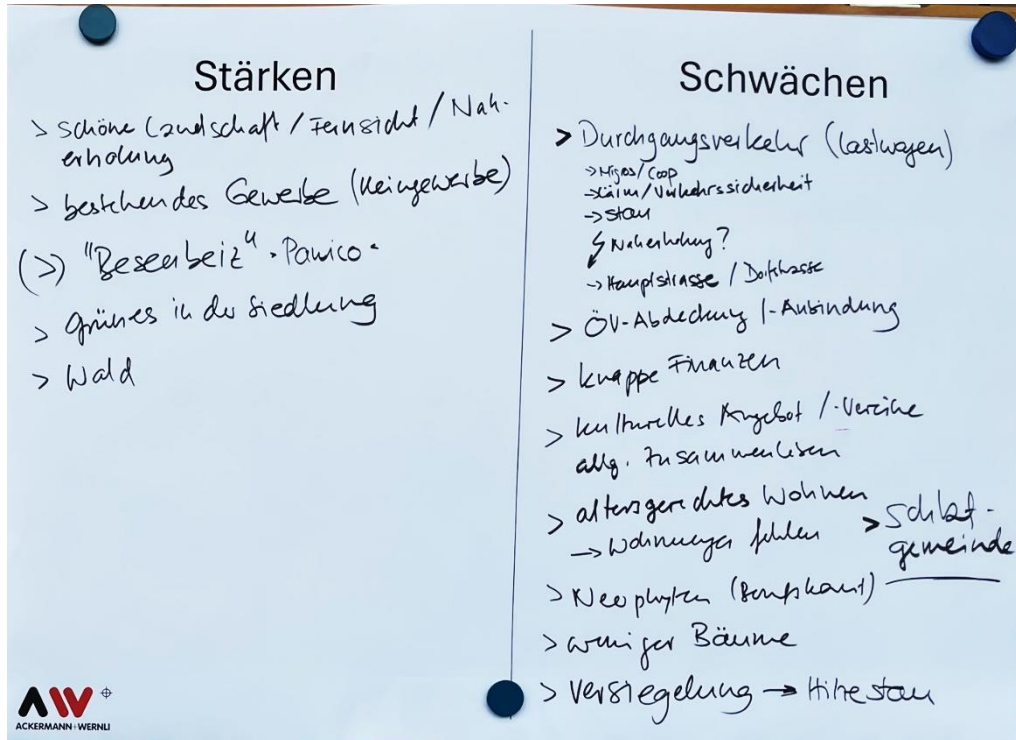 Stärken
> schöne Landschaft / Fernsicht / Nah-
erholung
> bestehendes Gewerbe (Kleingewerbe)
(>) "Besenbeiz" · Panico ·
> grünes in der Siedlung
> Wald
Schwächen
> Durchgangsverkehr (Lastwagen)
-> Migros/Coop
-> Lärm/Verkehrssicherheit
-> Stau
Naherholung?
-> Hauptstrasse / Dorfstrasse
> ÖV-Abdeckung /-Anbindung
> knappe Finanzen
> kulturelles Angebot /-Vereine
allg. Zusammenleben
> altersgerechtes Wohnen
-> Wohnungen fehlen
> Schlaf-
gemeinde
> Neophyten
> weniger Bäume
> Versiegelung → Hitzestau
AW
ACKERMANN+WERNLI